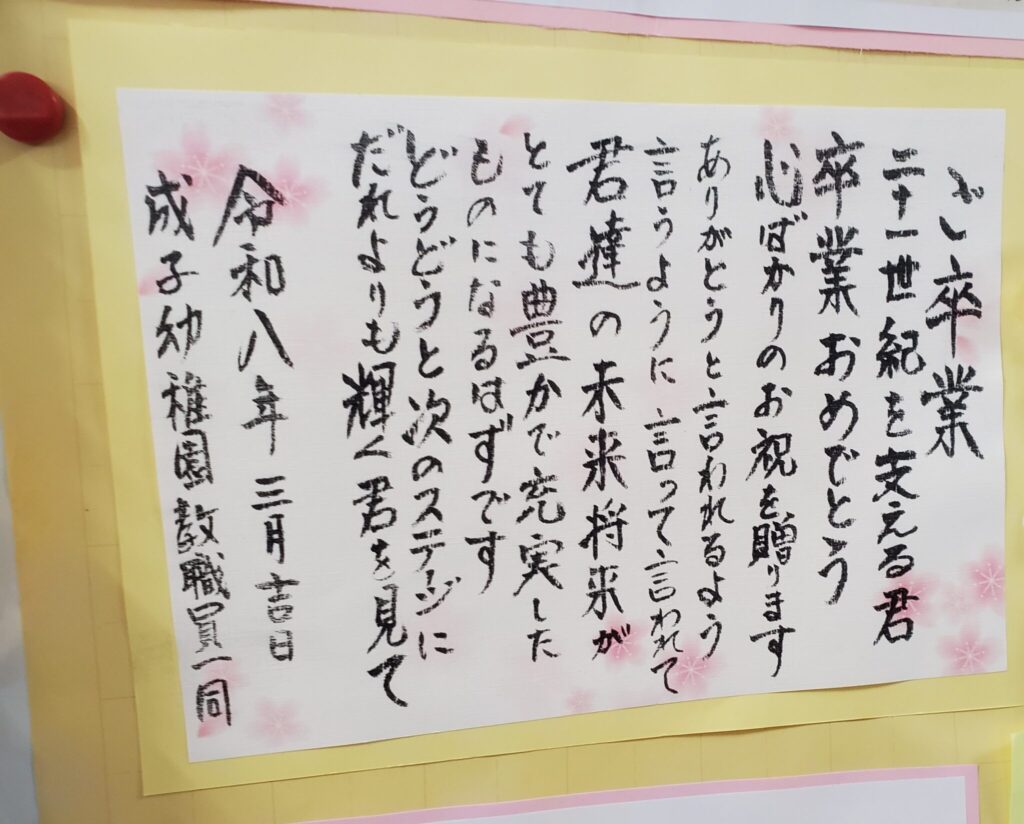 ご卒業
二十一世紀を支える君
卒業おめでとう
心ばかりのお祝を贈ります
ありがとうと言われるよう
言うように言って言われて
君達の未来将来が
とても豊かで充実した
ものになるはずです
どうどうと次のステージに
だれよりも輝く君を見て
令和八年三月吉日
成子幼稚園教職員一同